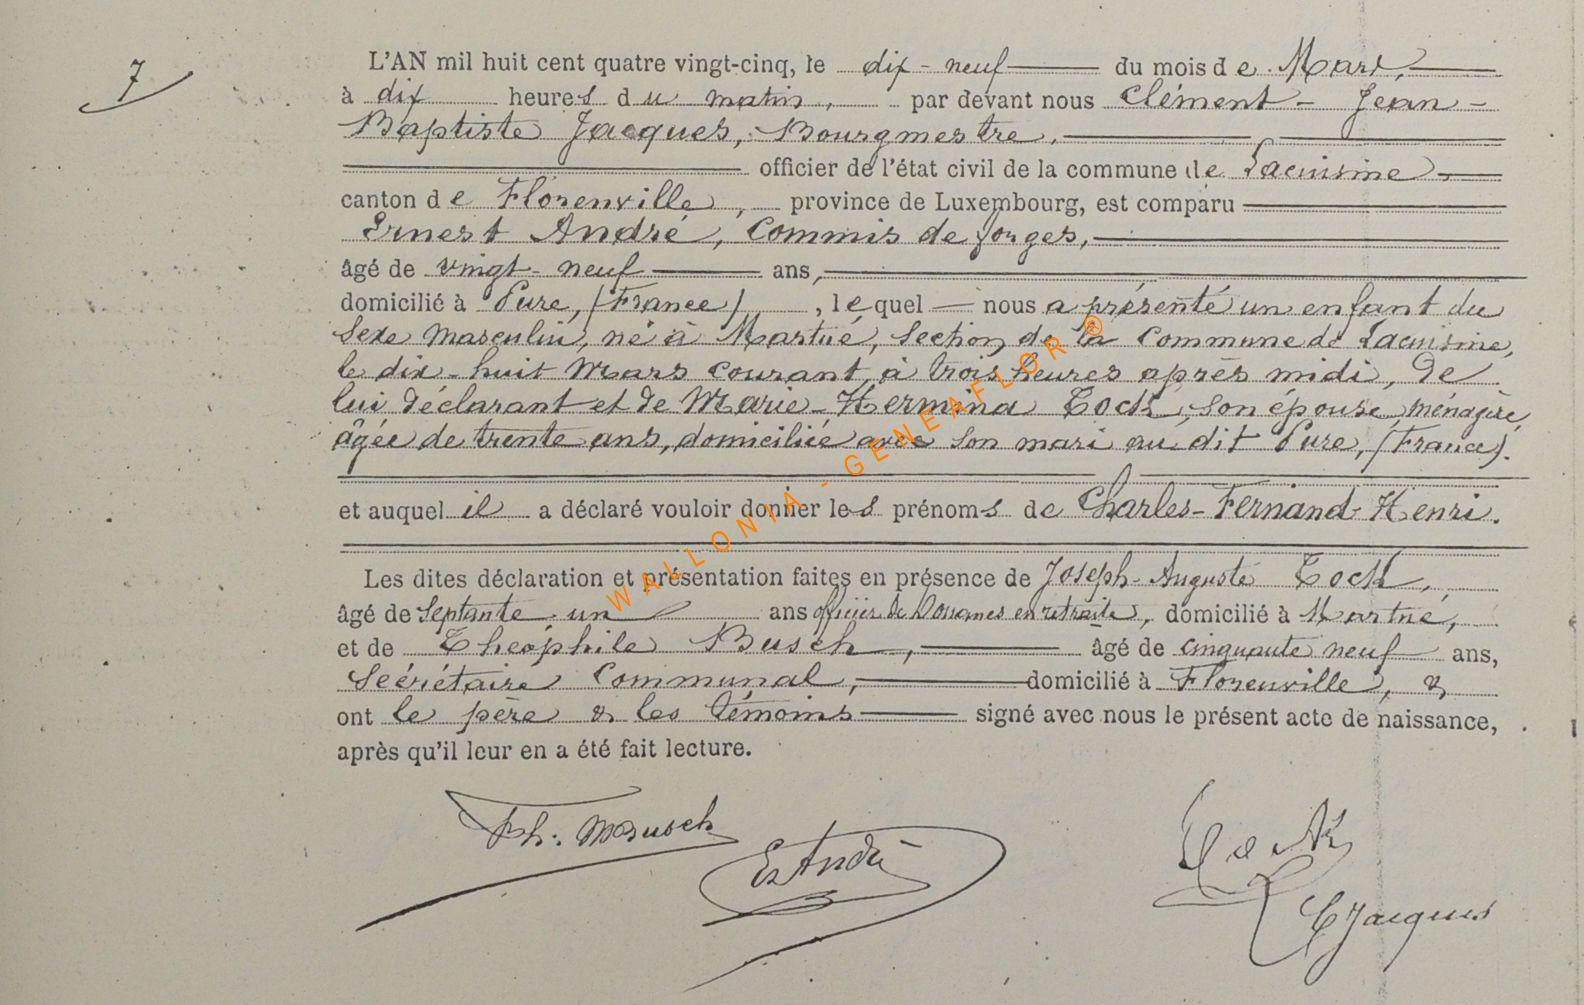 7
L'AN mil huit cent quatre vingt-cinq, le dix-neuf du mois de Mars,
à dix heures du matin, par devant nous Clément-Jean-
Baptiste Jacques, Bourgmestre,
officier de l'état civil de la commune de Lacuisine,
canton de Florenville, province de Luxembourg, est comparu
Ernest André, Commis de forges,
âgé de vingt-neuf ans,
domicilié à Pure, (France), lequel nous a présenté un enfant du
sexe masculin, né à Martué, section de la Commune de Lacuisine,
le dix-huit Mars courant, à trois heures après midi, De
lui déclarant et de Marie-Hermina Tock, son épouse, ménagère,
âgée de trente ans, domiciliée avec son mari au dit Pure, (France).
et auquel il a déclaré vouloir donner les prénoms de Charles-Fernand-Henri.
Les dites déclaration et présentation faites en présence de Joseph-Auguste Tock,
âgé de septante un ans officier de Douanes en retraite, domicilié à Martué,
et de Théophile Busch, âgé de cinquante neuf ans,
Secrétaire Communal, domicilié à Florenville, &
ont le père & les témoins signé avec nous le présent acte de naissance,
après qu'il leur en a été fait lecture.
Th: Busch
E André
Tock
CJacques
WALLONIA - GENEAFLOR ®